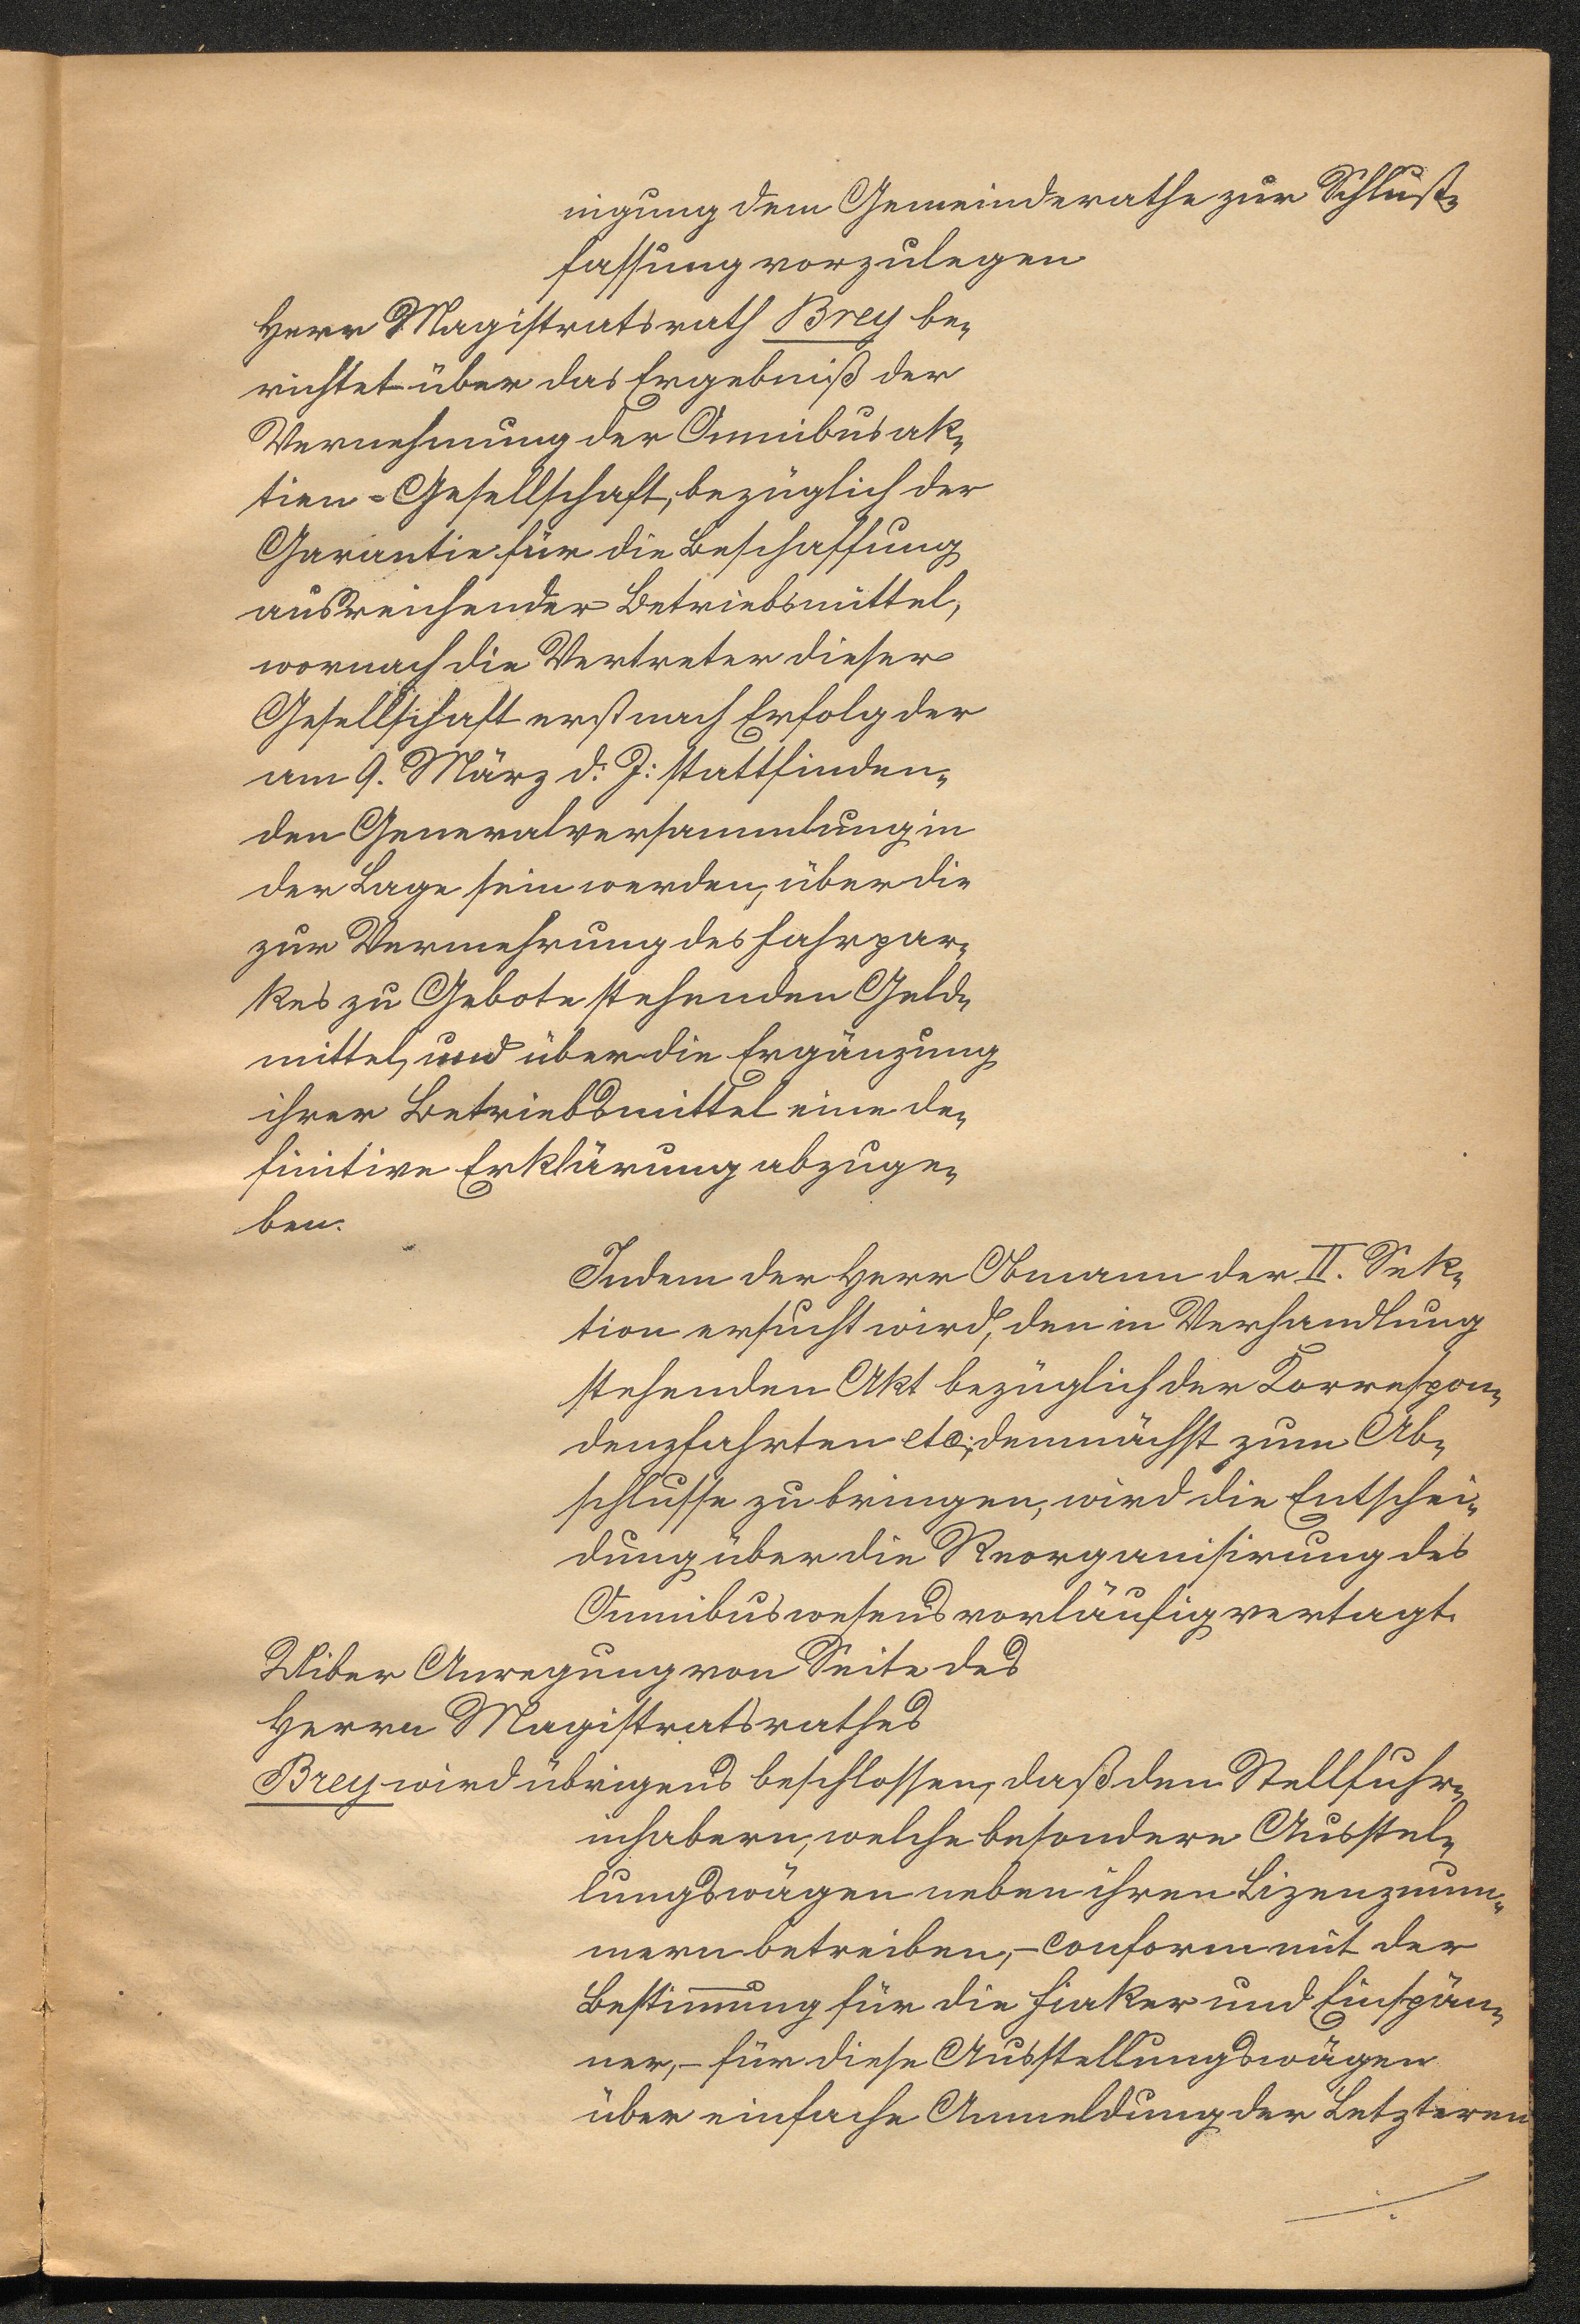 nigung dem Gemeinderathe zur Schluß-
fassung vorzulegen
Herr Magistratsrath Brey be-
richtet über das Ergebniß der
Vernehmung der Omnibusak-
tien-Gesellschaft, bezüglich der
Garantie für die Beschaffung
ausreichender Betriebsmittel,
wornach die Vertreter dieser
Gesellschaft erst nach Erfolg der
am 9. März d. J: stattfinden-
den Generalversammlung in
der Lage sein werden, über die
zur Vermehrung des Fahrpar-
kes zu Gebote stehenden Geld-
mittel, und über die Ergänzung
ihrer Betriebsmittel eine de-
finitive Erklärung abzuge-
ben.
Indem der Herr Obmann der II. Sek-
tion ersucht wird, den in Verhandlung
stehenden Akt bezüglich der Korrespon-
denzfahrten etc; demnächst zum Ab-
schlusse zu bringen, wird die Entschei-
dung über die Reorganisirung des
Omnibuswesens vorläufig vertagt.
Uiber Anregung von Seite des
Herrn Magistratsrathes
Brey wird übrigens beschlossen, daß den Stellfuhr-
inhabern, welche besondere Ausstel-
lungswägen neben ihren Lizenznum-
mern betreiben, - conform mit der
Bestim̅ung für die Fiaker und Einspän-
ner, - für diese Ausstellungswägen
über einfache Anmeldung der Letzteren
./.